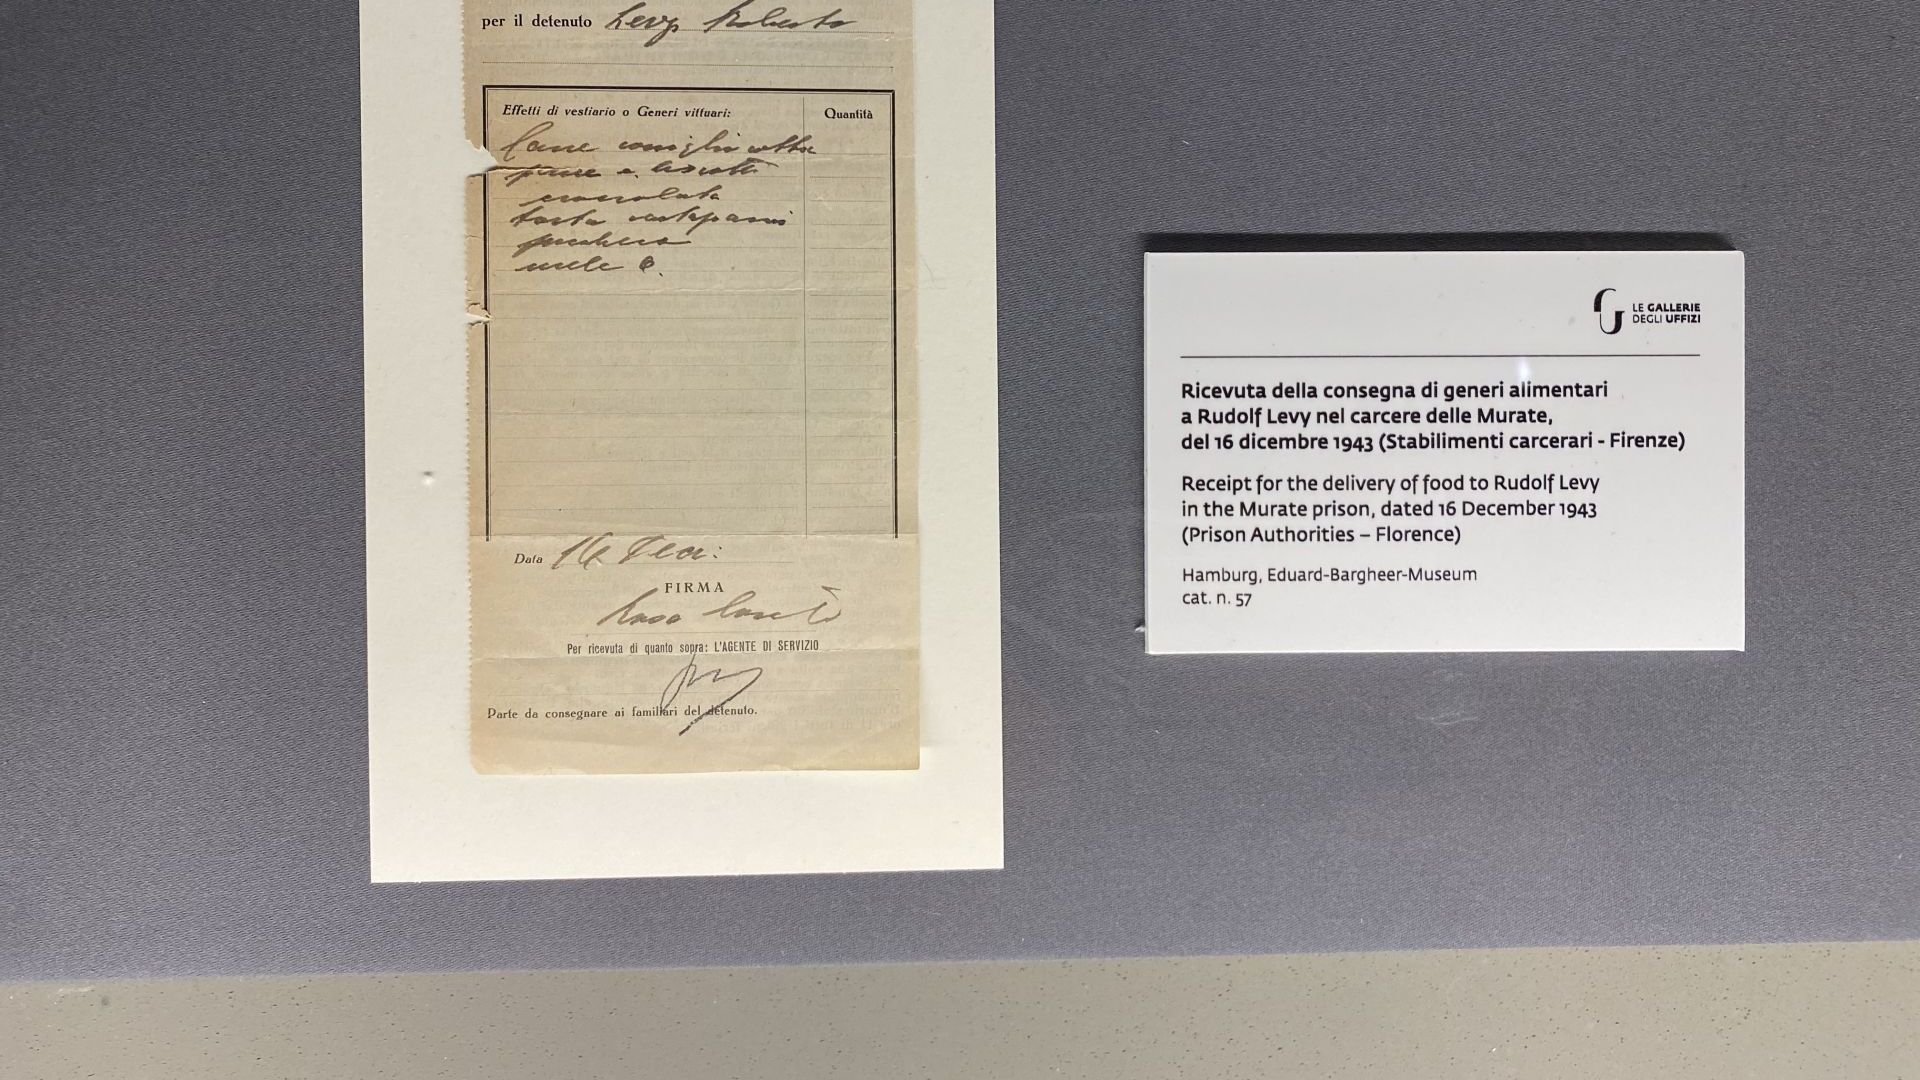 per il detenuto Levy Roberto
Effetti di vestiario o Generi vittuari:
Quantità
Carne coniglio cotta
pane e biscotti
cioccolata
torta
mele 6.
Data 16 Dec:
FIRMA
Rosa
Per ricevuta di quanto sopra: L'AGENTE DI SERVIZIO
Parte da consegnare ai familiari del detenuto.
LE GALLERIE
DEGLI UFFIZI
Ricevuta della consegna di generi alimentari
a Rudolf Levy nel carcere delle Murate,
del 16 dicembre 1943 (Stabilimenti carcerari - Firenze)
Receipt for the delivery of food to Rudolf Levy
in the Murate prison, dated 16 December 1943
(Prison Authorities – Florence)
Hamburg, Eduard-Bargheer-Museum
cat. n. 57